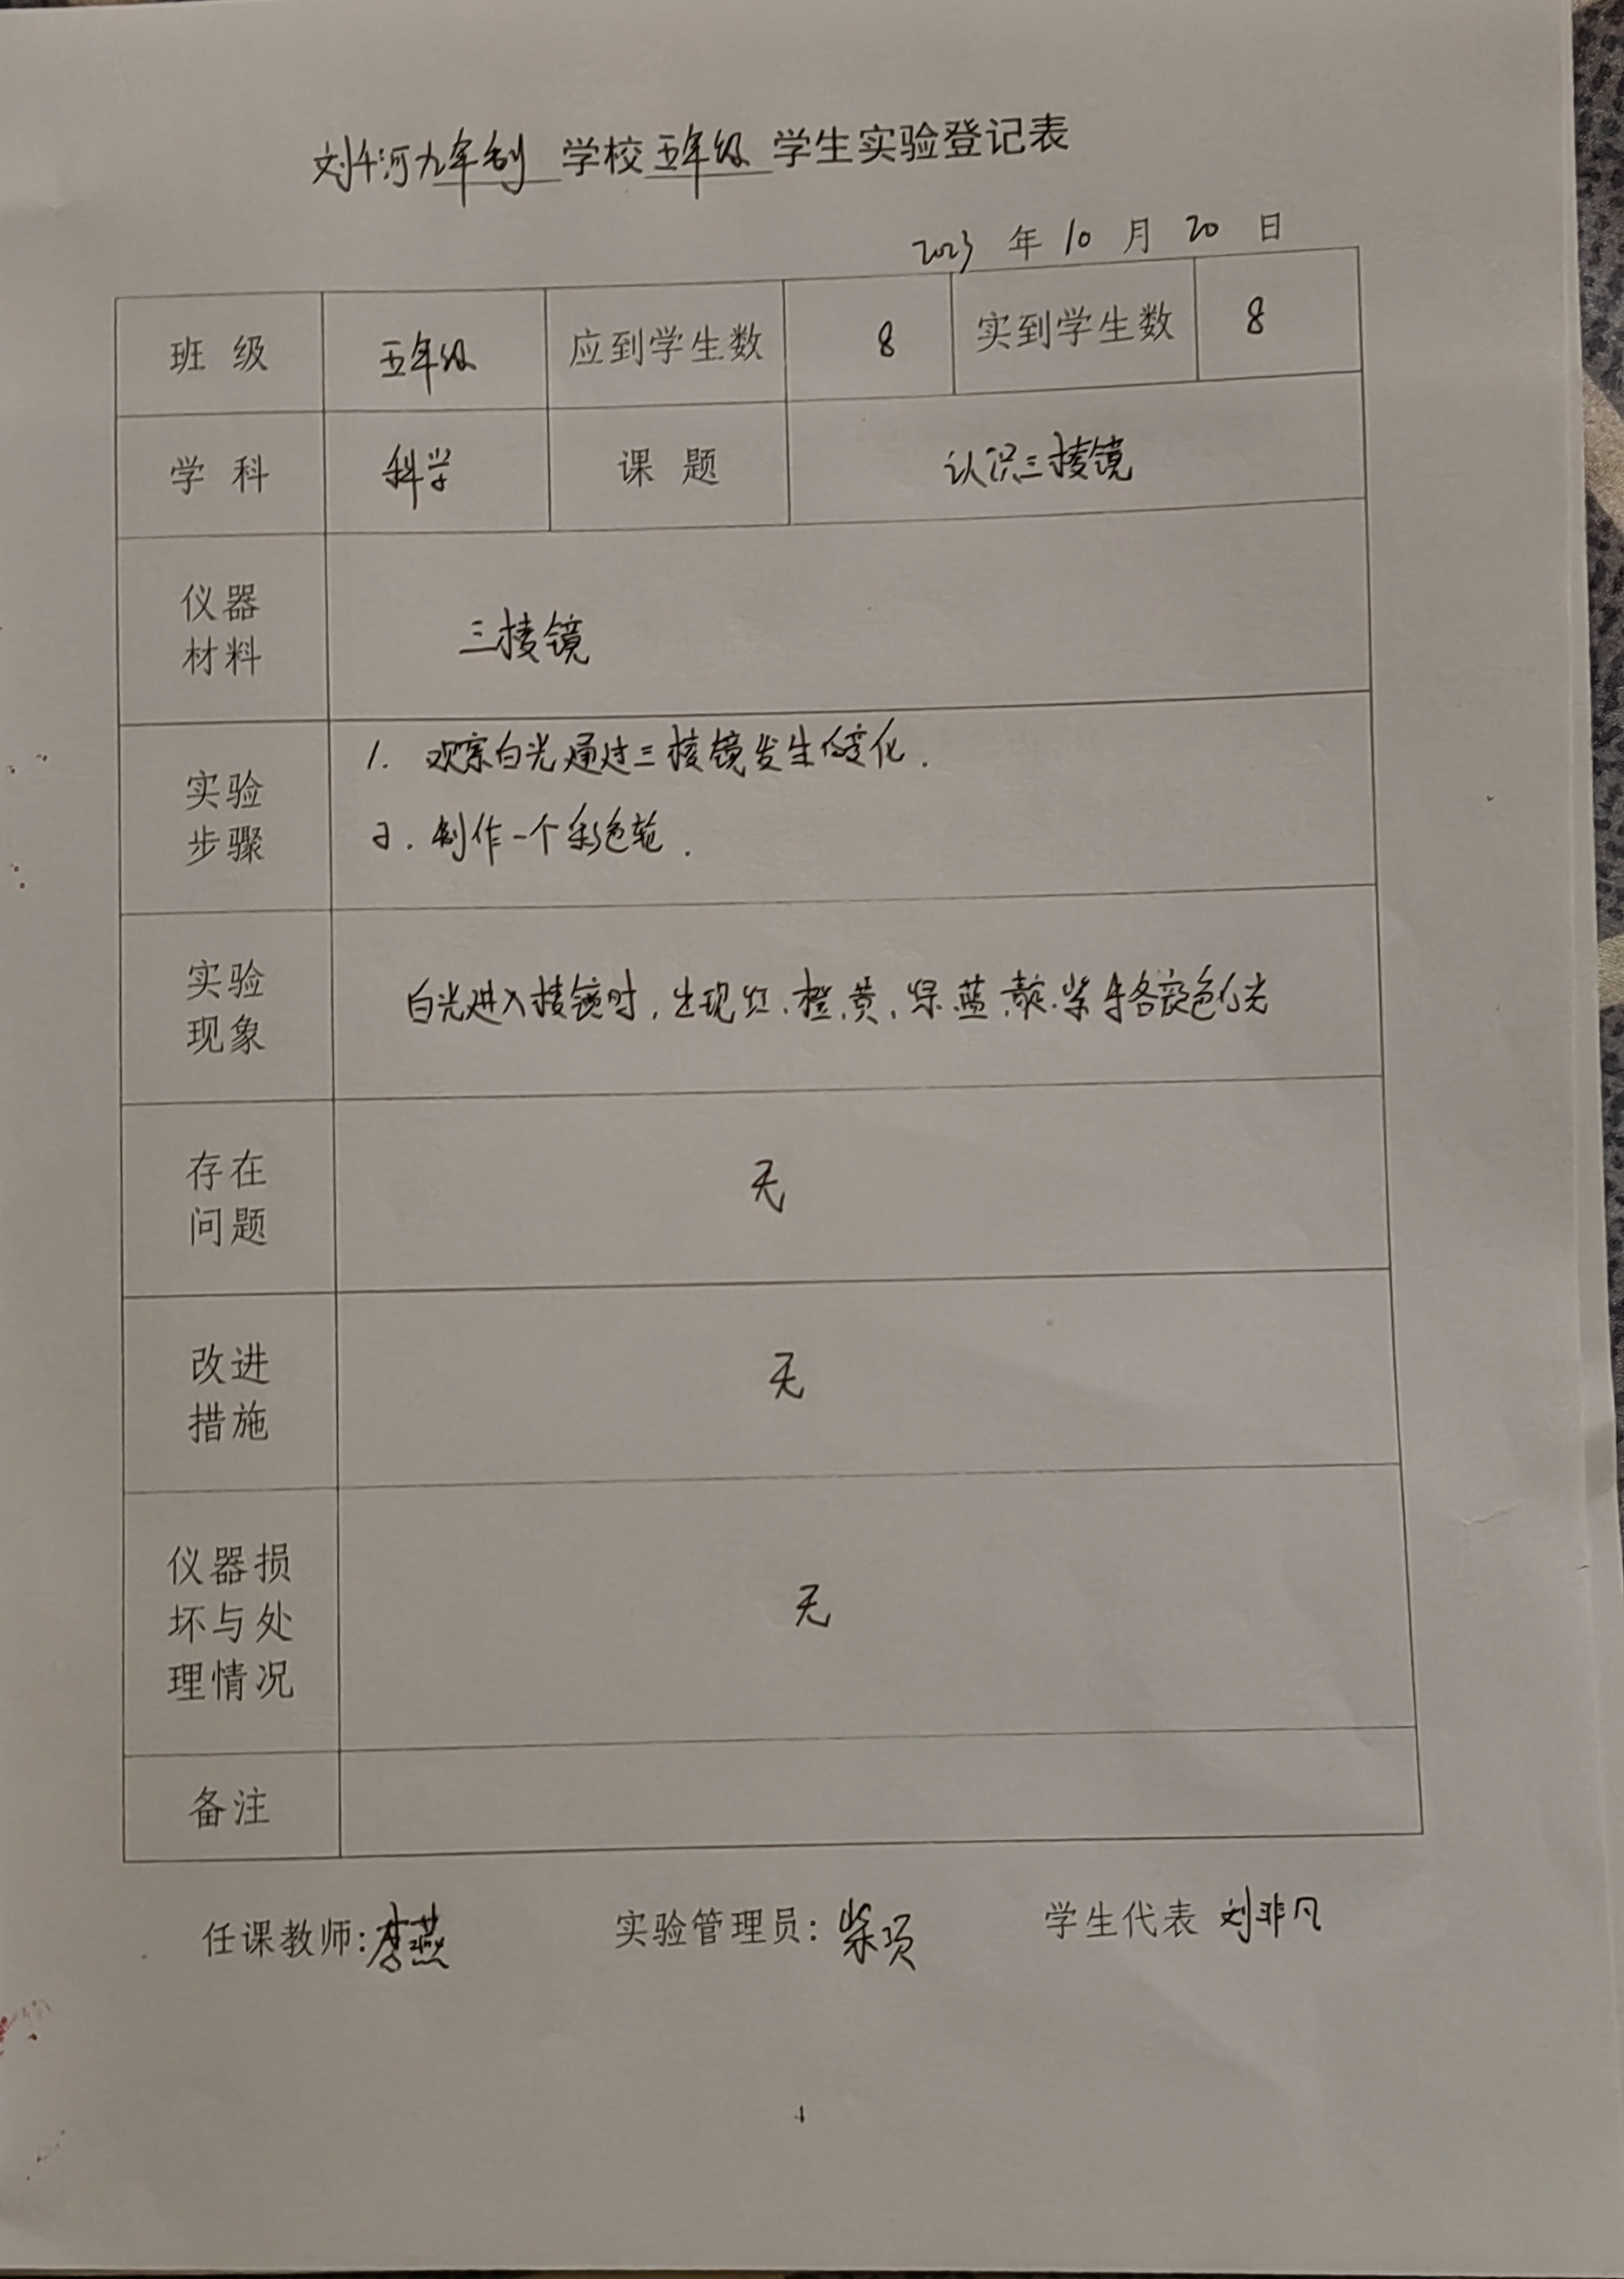 刘千河九年制 学校 五年级 学生实验登记表
2023 年 10 月 20 日
班 级 五年级 应到学生数 8 实到学生数 8
学 科 科学 课 题 认识三棱镜
仪器
材料
三棱镜
实验
步骤
1. 观察白光通过三棱镜发生的变化.
2. 制作一个彩色轮.
实验
现象
白光进入棱镜时,出现红、橙、黄、绿、蓝、靛、紫等各颜色的光
存在
问题
无
改进
措施
无
仪器损
坏与处
理情况
无
备注
任课教师: 李燕 实验管理员: 柴 学生代表 刘非凡
4